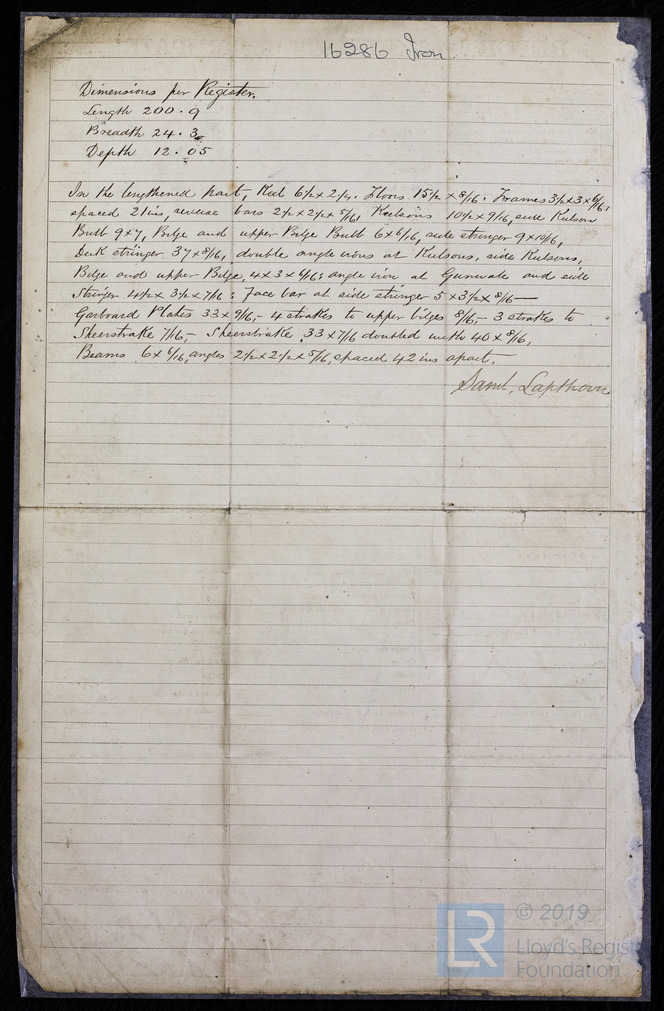 16286 Iron.
Dimensions per Register.
Length 200.9
Breadth 24.3
Depth 12.05
In the lengthened part, Keel 6½ x 2¼. Floors 15½ x 8/16. Frames 3½ x 3 x 6/16,
spaced 21 ins, reverse bars 2½ x 2½ x 5/16, Keelsons 10½ x 9/16, side Keelson
Bulb 9 x 7, Bilge and upper Bilge Bulb 6 x 6/16, side stringer 9 x 10/16,
Deck stringer 37 x 8/16, double angle irons at Keelsons, side Keelsons,
Bilge and upper Bilge, 4 x 3 x 6/16; angle iron at Gunwale and side
Stringer 4½ x 3½ x 7/16; Face bar at side stringer 5 x 3½ x 8/16 —
Garboard Plates 33 x 9/16, - 4 strakes to upper bilges 8/16, - 3 strakes to
Sheerstrake 7/16, - Sheerstrake 33 x 7/16 doubled with 40 x 8/16,
Beams 6 x 6/16, angles 2½ x 2½ x 5/16, spaced 42 ins apart.
Saml. Lapthorn
© 2019
LR
Lloyd's Regist
Foundation